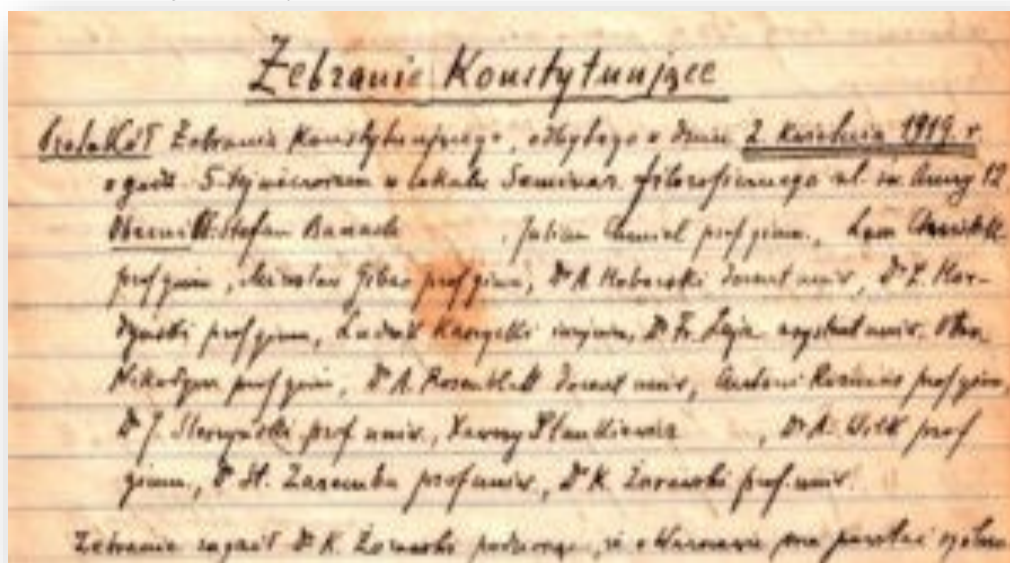 Zebranie Konstytuujące
Protokół Zebrania Konstytuującego, odbytego w dniu 2 kwietnia 1919 r.
o godz. 5-tej wieczorem w lokalu Seminar. filozoficznego ul. św. Anny 12
Obecni: Stefan Banach , Julian Chmiel prof gimn., Leon Chwistek
prof gimn, prof gimn, Dr A. Hoborski docent uniw, Dr Z. Hor-
dyński prof gimn, Ludwik inżynier, Dr Fr. Leja asystent uniw. Otton
Nikodym prof gimn, Dr A. Rosenblatt docent uniw, Antoni prof gimn,
Dr J. Śleszyński prof uniw., , Dr A. Wilk prof
gimn., Dr St. Zaremba prof uniw., Dr K. Żorawski prof. uniw.
Zebranie zagaił Dr K. Żorawski podnosząc, że w Warszawie ma powstać